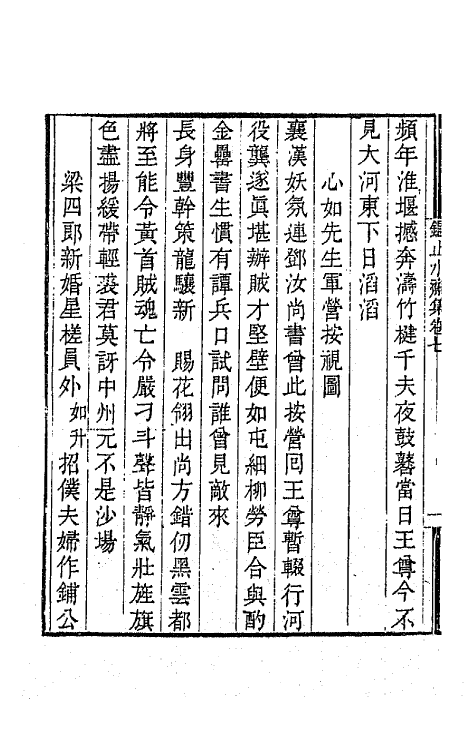 鑑止水齋集卷七
頻年淮堰撼奔濤竹楗千夫夜鼓鼛當日王尊今不
見大河東下日滔滔
心如先生軍營按視圖
襄漢妖氛連鄧汝尚書曾此按營回王尊暫輟行河
役龔遂眞堪辦賊才堅壁便如屯細柳勞臣合與酌
金罍書生慣有譚兵口試問誰曾見敵來
長身豐幹策龍驤新 賜花翎出尚方錯仞黑雲都
將至能令黃首賊魂亡令嚴刁斗聲皆靜氣壯旌旗
色盡揚緩帶輕裘君莫訝中州元不是沙場
梁四郎新婚星槎員外如升招僕夫婦作鋪公